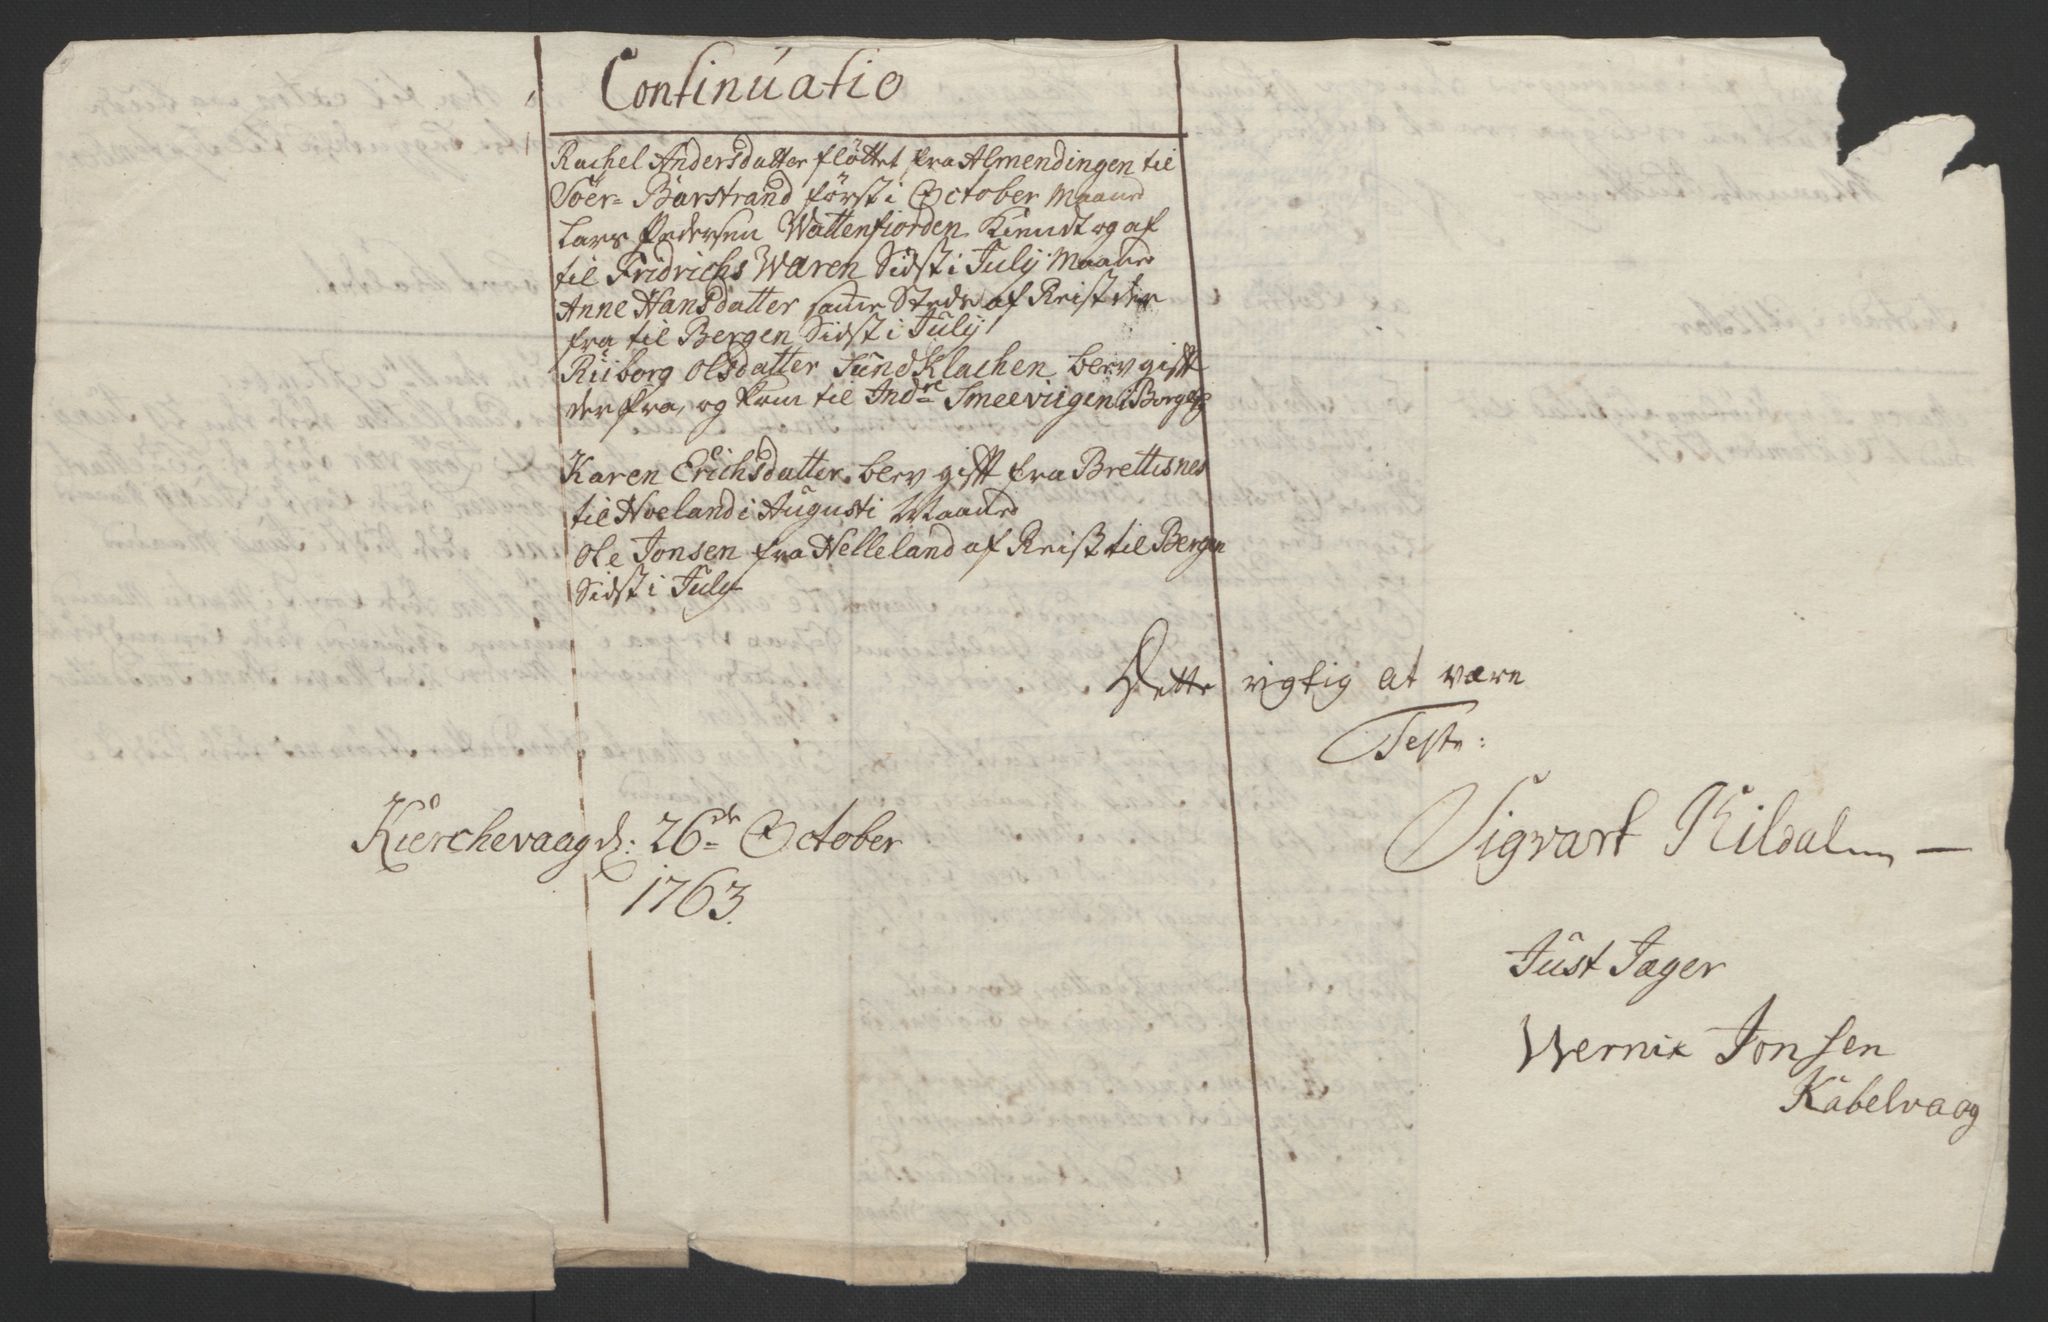 Continuatio
Rachel Andersdatter fløttet fra Almendingen til
Söer- Barstrand først i October Maaned
Lars Pedersen Wattenfiorden Kiendt og af
til Fridrichs Waren Sidst i July Maaned
Anne Hansdatter same Stede af Reist der
fra til Bergen Sidst i July
Riiborg Olsdatter Sundklachen blev gift
der fra, og kom til Indre Smeeviigen i Borge
Karen Erichsdatter blev gift fra Brettesnes
til Hoeland i Augusti Maaned
Ole Jonsen fra Helleland af Reist til Bergen
Sidst i July
Dette rigtig at være
Teste:
Kierchevaag d: 26de October
1763.
Sigvart Kildal
Just Jæger
Wernix Jonsen
Kabelvaag